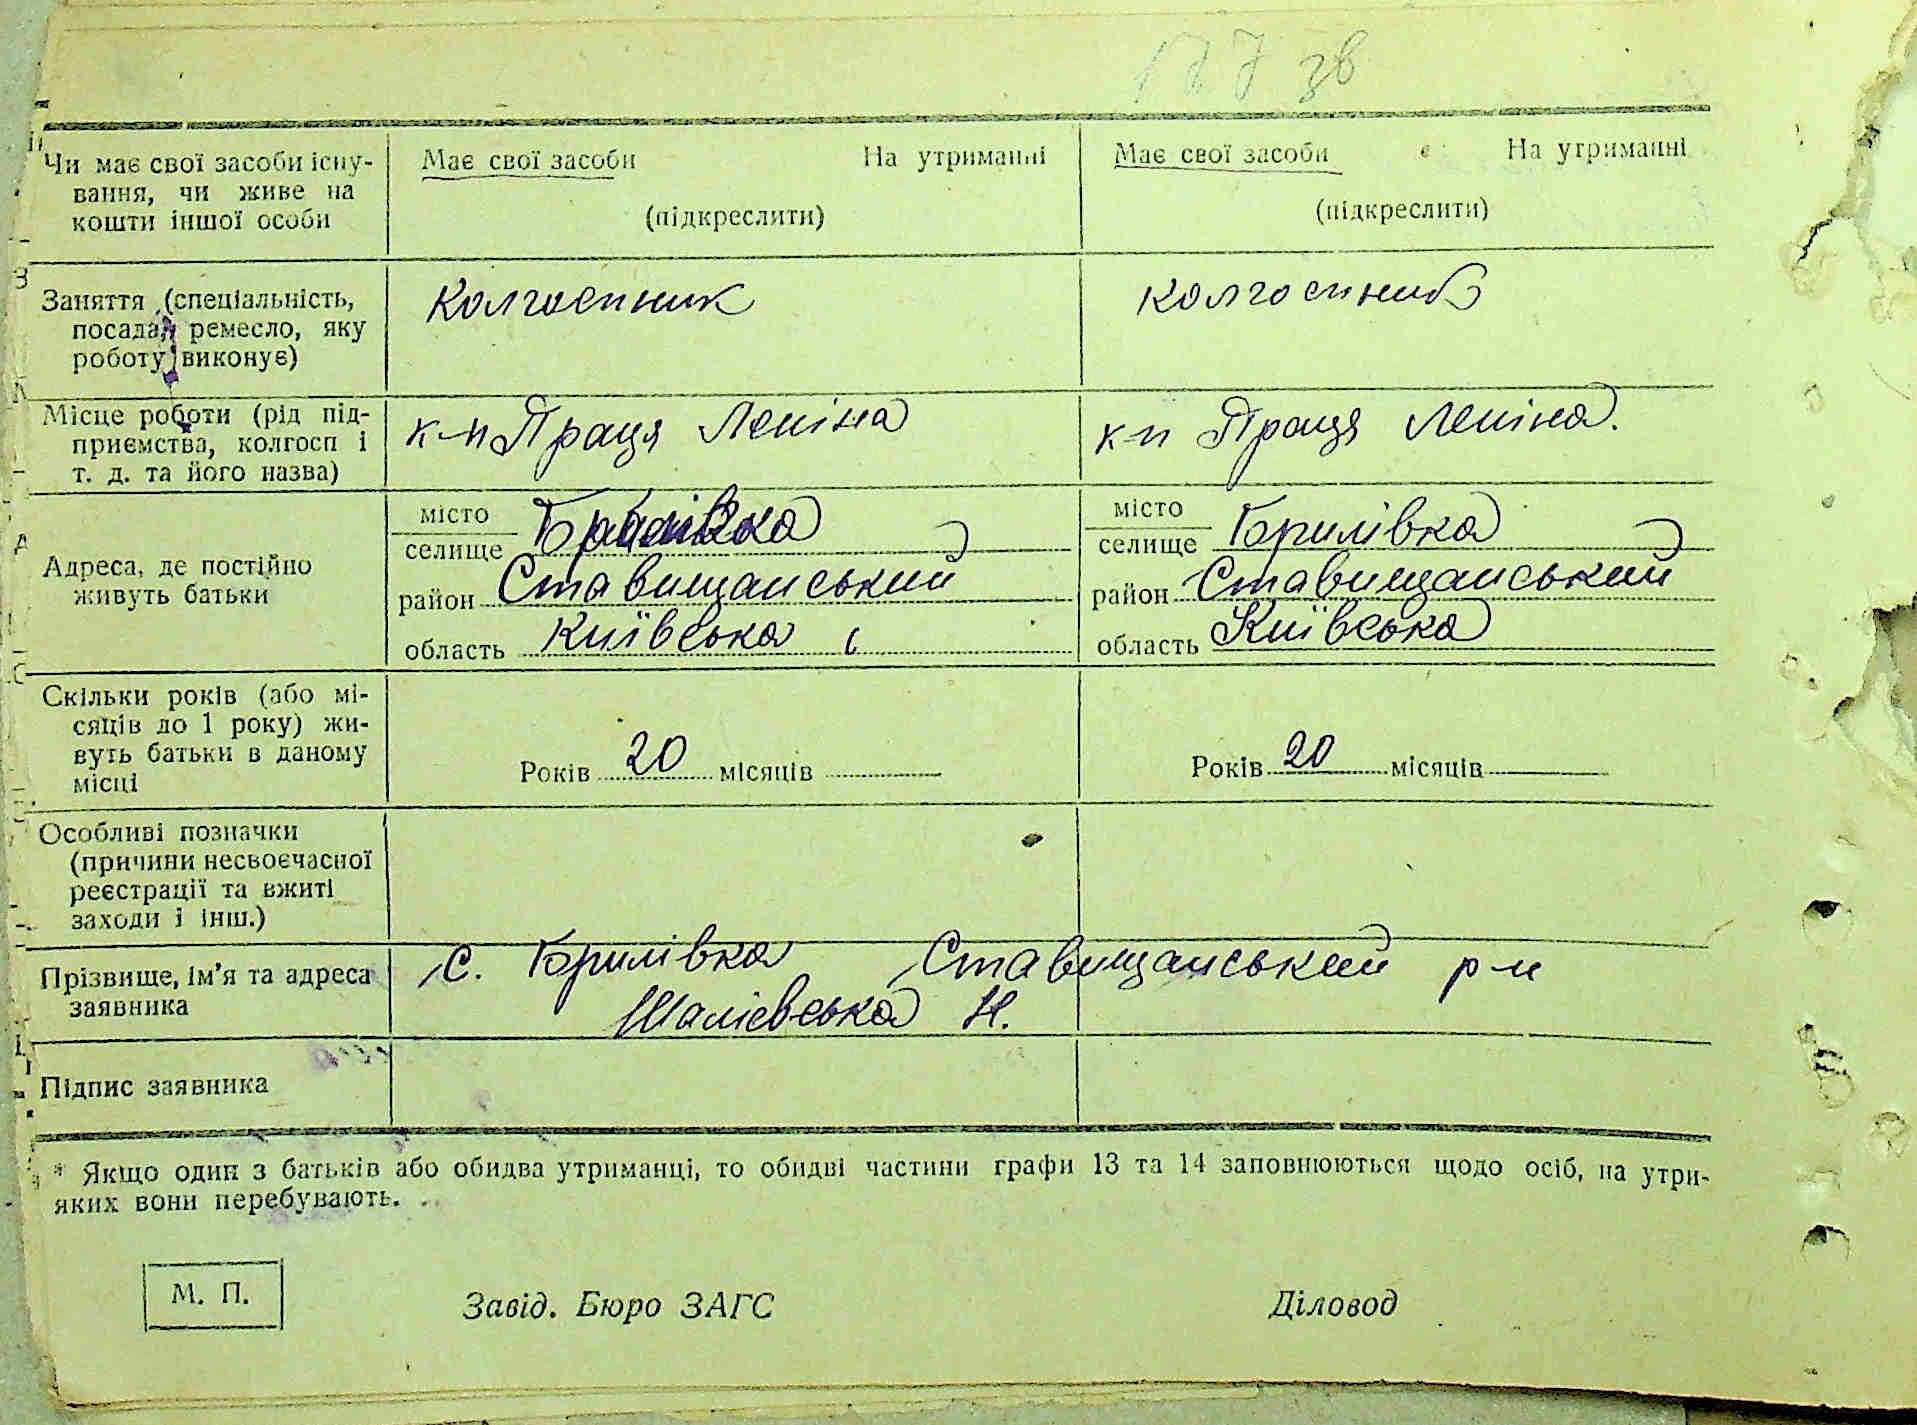 177 зв
Чи має свої засоби існу-
вання, чи живе на
кошти іншої особи
Має свої засоби На утриманні
(підкреслити)
Має свої засоби На утриманні
(підкреслити)
Заняття (спеціальність,
посада, ремесло, яку
роботу виконує)
Колгоспник
Колгоспник
Місце роботи (рід під-
приємства, колгосп і
т. д. та його назва)
к-п Праця Леніна
к-п Праця Леніна.
Адреса, де постійно
живуть батьки
місто
селище
район Ставищанський
область Київська
місто
селище Брилівка
район Ставищанський
область Київська
Скільки років (або мі-
сяців до 1 року) жи-
вуть батьки в даному
місці
Років 20 місяців
Років 20 місяців
Особливі позначки
(причини несвоєчасної
реєстрації та вжиті
заходи і інш.)
Прізвище, ім’я та адреса
заявника
с. Брилівка Ставищанський р-н
Шалієвська Н.
Підпис заявника
* Якщо один з батьків або обидва утриманці, то обидві частини графи 13 та 14 заповнюються щодо осіб, на утри-
яких вони перебувають.
М. П.
Завід. Бюро ЗАГС
Діловод